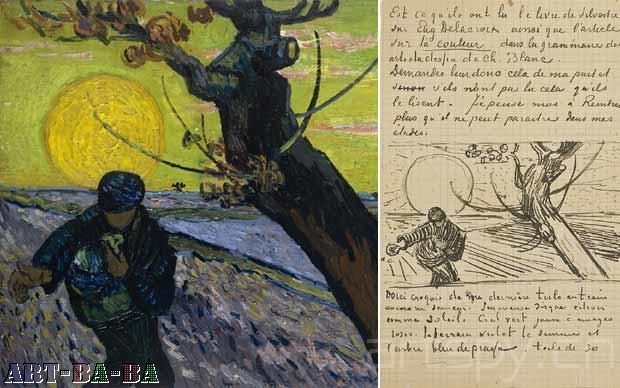 Est ce qu'ils ont lu le livre de Silvestre
sur Eug Delacroix ainsi que l'article
sur la couleur dans la grammaire des
arts du dessin de Ch. Blanc.
Demandez leur donc cela de ma part et
sinon s'ils n'ont pas lu cela qu'ils
le lisent. je pense moi à
plus qu'il ne peut paraitre dans mes
études.
Voici croquis de ma dernière toile en train
encore un semeur. Immense disque citron
comme soleil. Ciel vert jaune à nuages
roses. le terrain violet le semeur et
l'arbre bleu de prusse toile de 30
ART-BA-BA